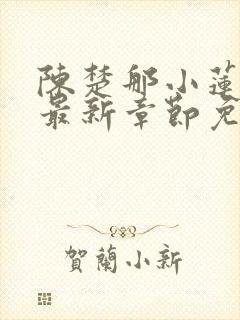 陳楚那小蓮
最新章節免
賀蘭小新